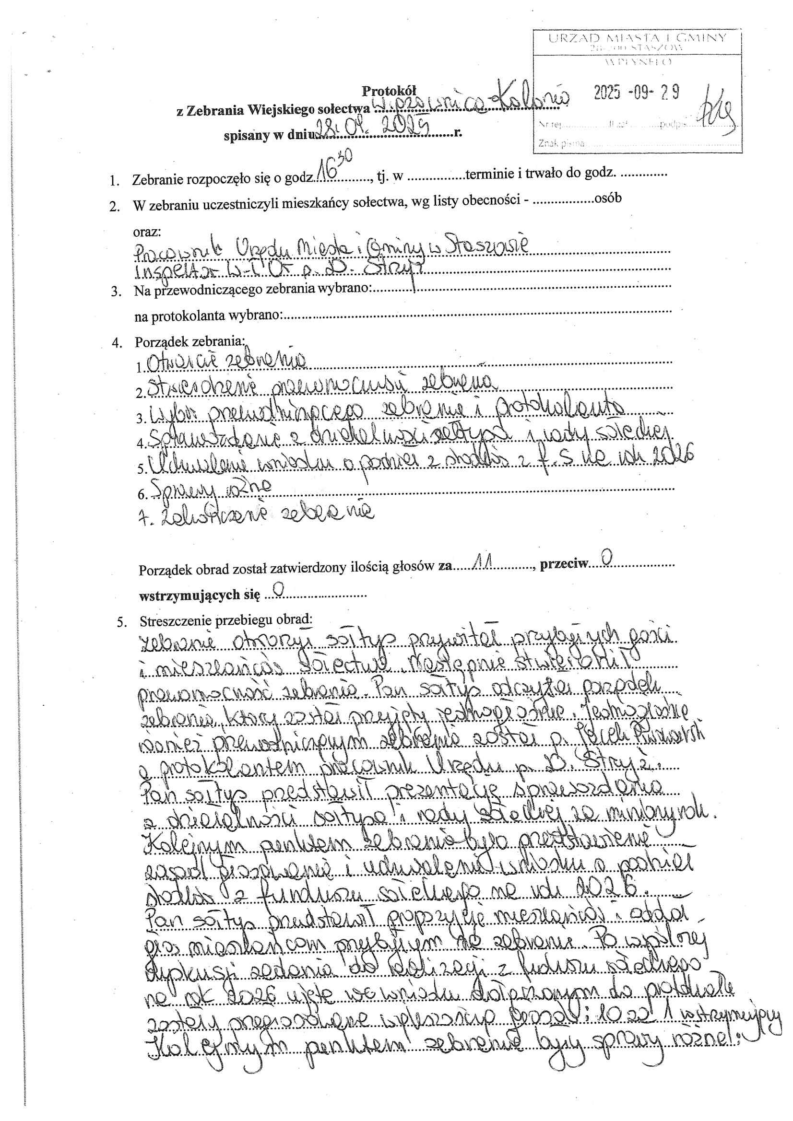 URZĄD MIASTA I GMINY
28-200 STASZÓW
WPŁYNĘŁO
2025 -09- 29
Nr rej. Il.zał. podpis
Znak pisma
Protokół
z Zebrania Wiejskiego sołectwa Wiązownica-Kolonia
spisany w dniu 28.09.2025 r.
1. Zebranie rozpoczęło się o godz. 16³⁰, tj. w ...............terminie i trwało do godz. .............
2. W zebraniu uczestniczyli mieszkańcy sołectwa, wg listy obecności - ................osób
oraz:
Pracownik Urzędu Miasta i Gminy w Staszowie
Inspektor p. D. Stryż
3. Na przewodniczącego zebrania wybrano:
na protokolanta wybrano:
4. Porządek zebrania:
1. Otwarcie zebrania
2. Stwierdzenie prawomocności zebrania
3. Wybór przewodniczącego zebrania i protokolanta
4. Sprawozdanie z działalności sołtysa i rady sołeckiej
5. Uchwalenie wniosku o podział z środków z f.s na rok 2026
6. Sprawy różne
7. Zakończenie zebrania
Porządek obrad został zatwierdzony ilością głosów za 11, przeciw 0
wstrzymujących się 0
5. Streszczenie przebiegu obrad:
Zebranie otworzył sołtys przywitał przybyłych gości
i mieszkańców sołectwa. Następnie stwierdził
prawomocność zebrania. Pan sołtys odczytał porządek
zebrania, który został przyjęty jednogłośnie. Jednogłośnie
również przewodniczącym zebrania został p.
a protokolantem pracownik Urzędu p. D. Stryż.
Pan sołtys przedstawił prezentację sprawozdania
z działalności sołtysa i rady sołeckiej za miniony rok.
Kolejnym punktem zebrania było przedstawienie
zasad głosowania i uchwalenia wniosku o podział
środków z funduszu sołeckiego na rok 2026.
Pan sołtys przedstawił propozycje mieszkańców i oddał
głos mieszkańcom przybyłym na zebranie. Po wspólnej
dyskusji zadania do realizacji z funduszu sołeckiego
na rok 2026 ujęte we wniosku dołączonym do protokołu
zostały przegłosowane większością głosów: 10 za 1 wstrzymujący
Kolejnym punktem zebrania były sprawy różne: